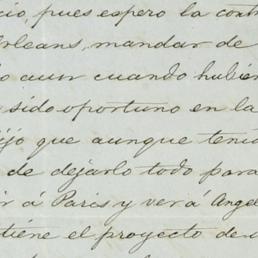 cio, pues espero la cont
rleans, mandar de
aun cuando hubie
sido oportuno en la
ijo que aunque tení
de dejarlo todo para
ir á Paris y ver á Angel
tiene el proyecto de